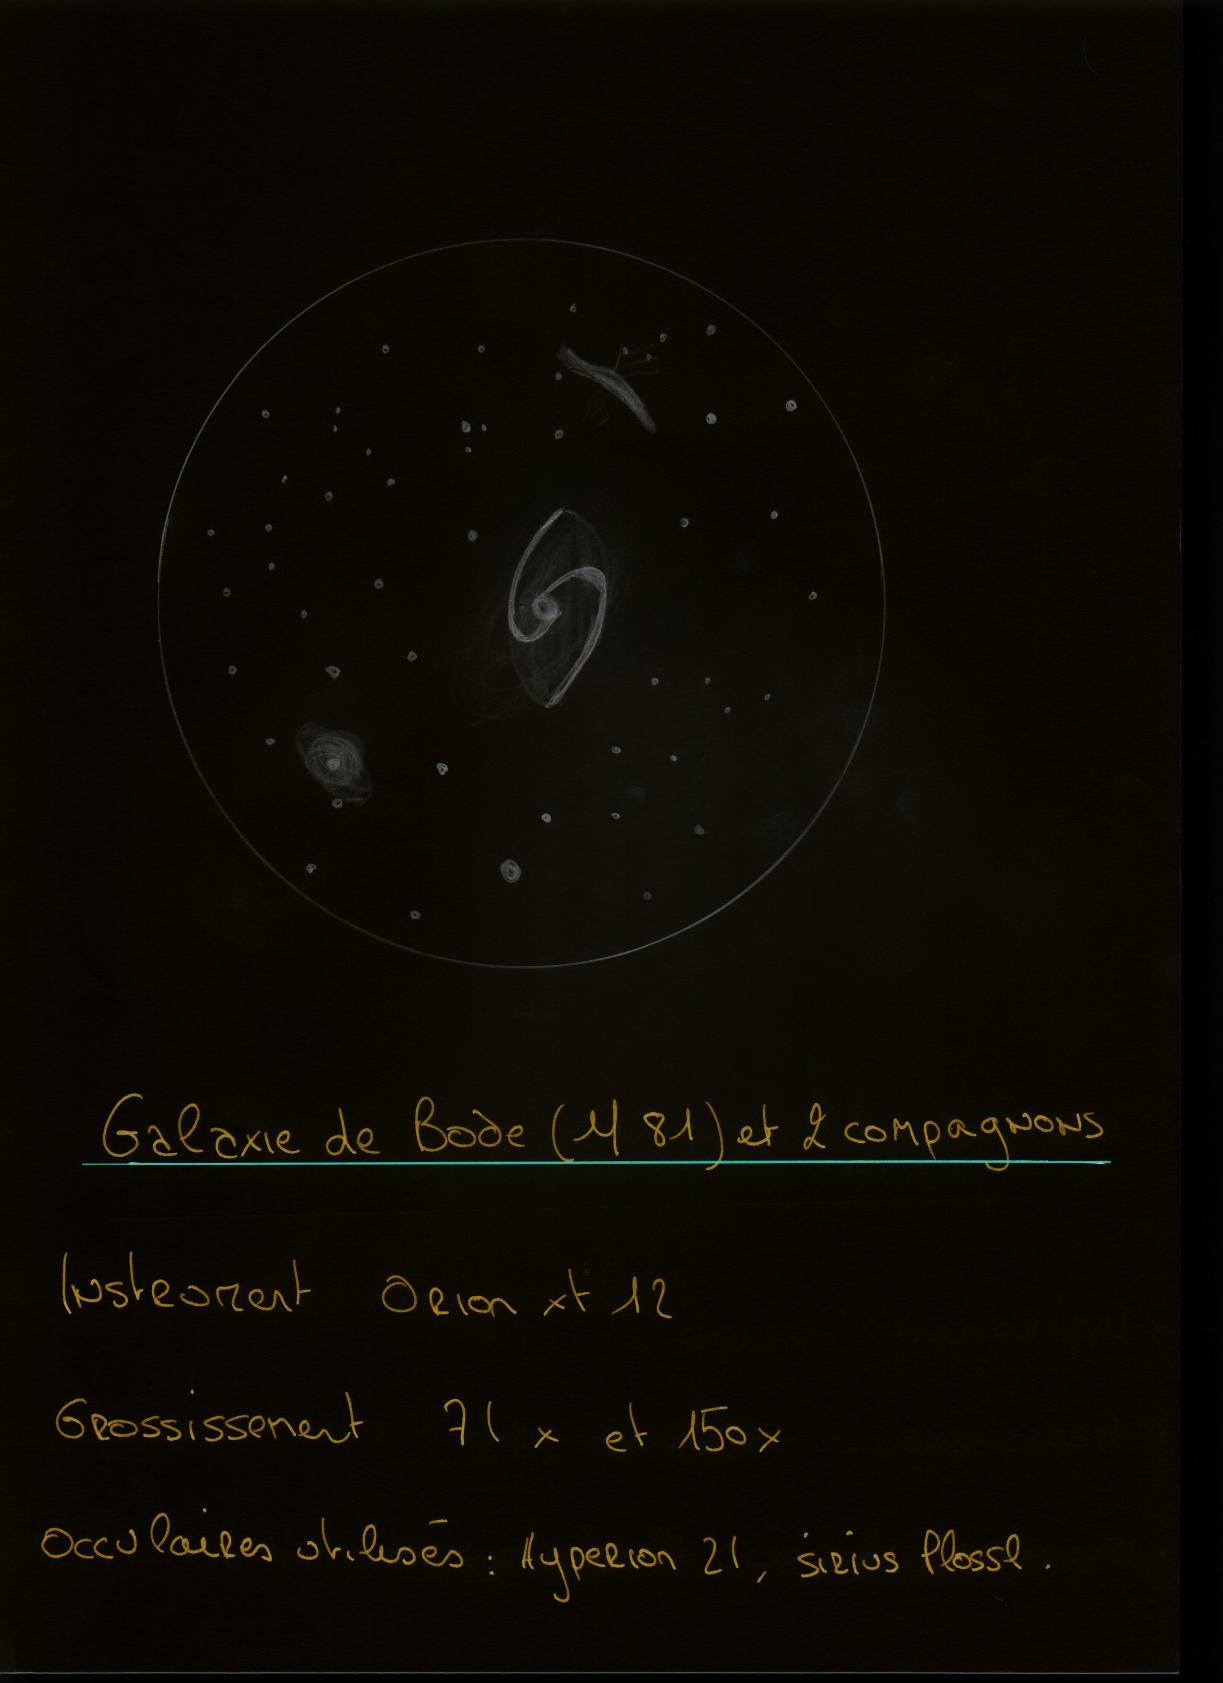 Galaxie de Bode (M 81) et 2 compagnons
Instrument Orion xt 12
Grossissement 71 x et 150x
Occulaires utilisés : Hyperion 21, sirius Plossl.